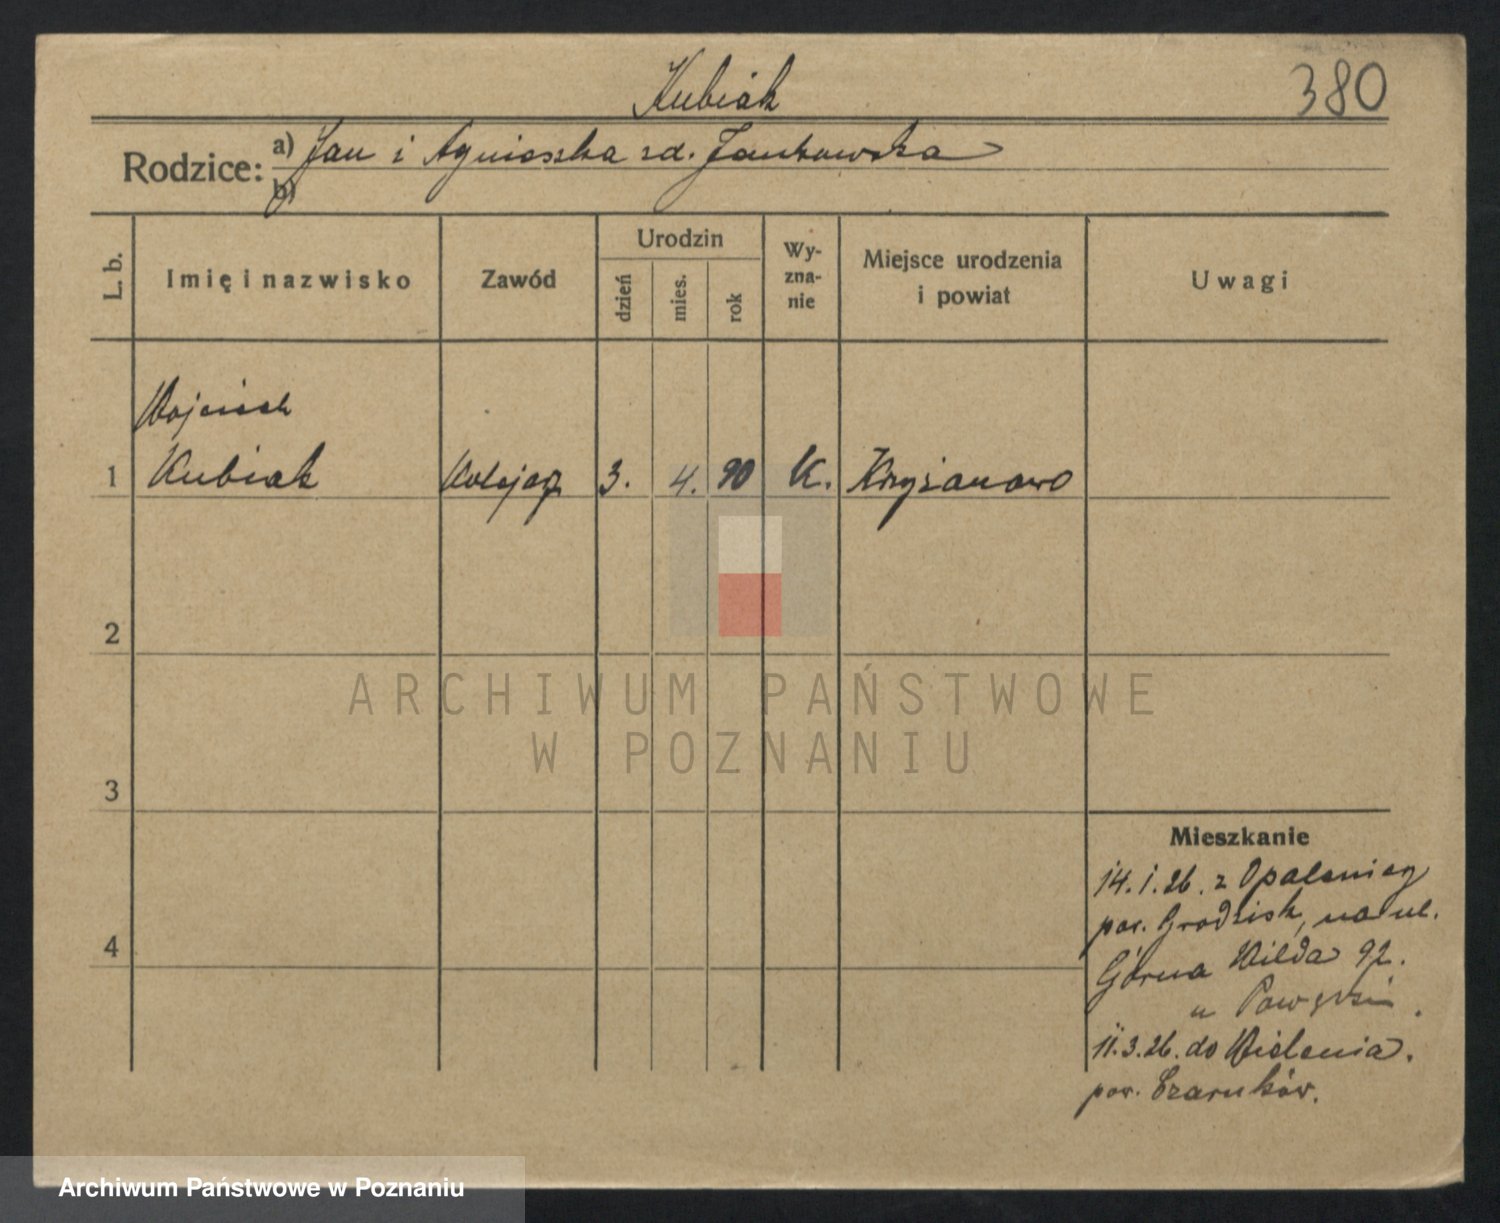 Kubiak
380
Rodzice: a) Jan i Agnieszka zd. Jankowska
b)
L. b.
Imię i nazwisko
Zawód
Urodzin
dzień
mies.
rok
Wy-
zna-
nie
Miejsce urodzenia
i powiat
Uwagi
Wojciech
1 Kubiak Kolejarz 3. 4. 90 K. Krzyżanowo
2
ARCHIWUM PAŃSTWOWE
W POZNANIU
3
Mieszkanie
14.1.26. z Opalenicy
pow. Grodzisk, na ul.
4
Górna Wilda 92.
u
11.3.26. do Wielenia.
pow. Czarnków.
Archiwum Państwowe w Poznaniu